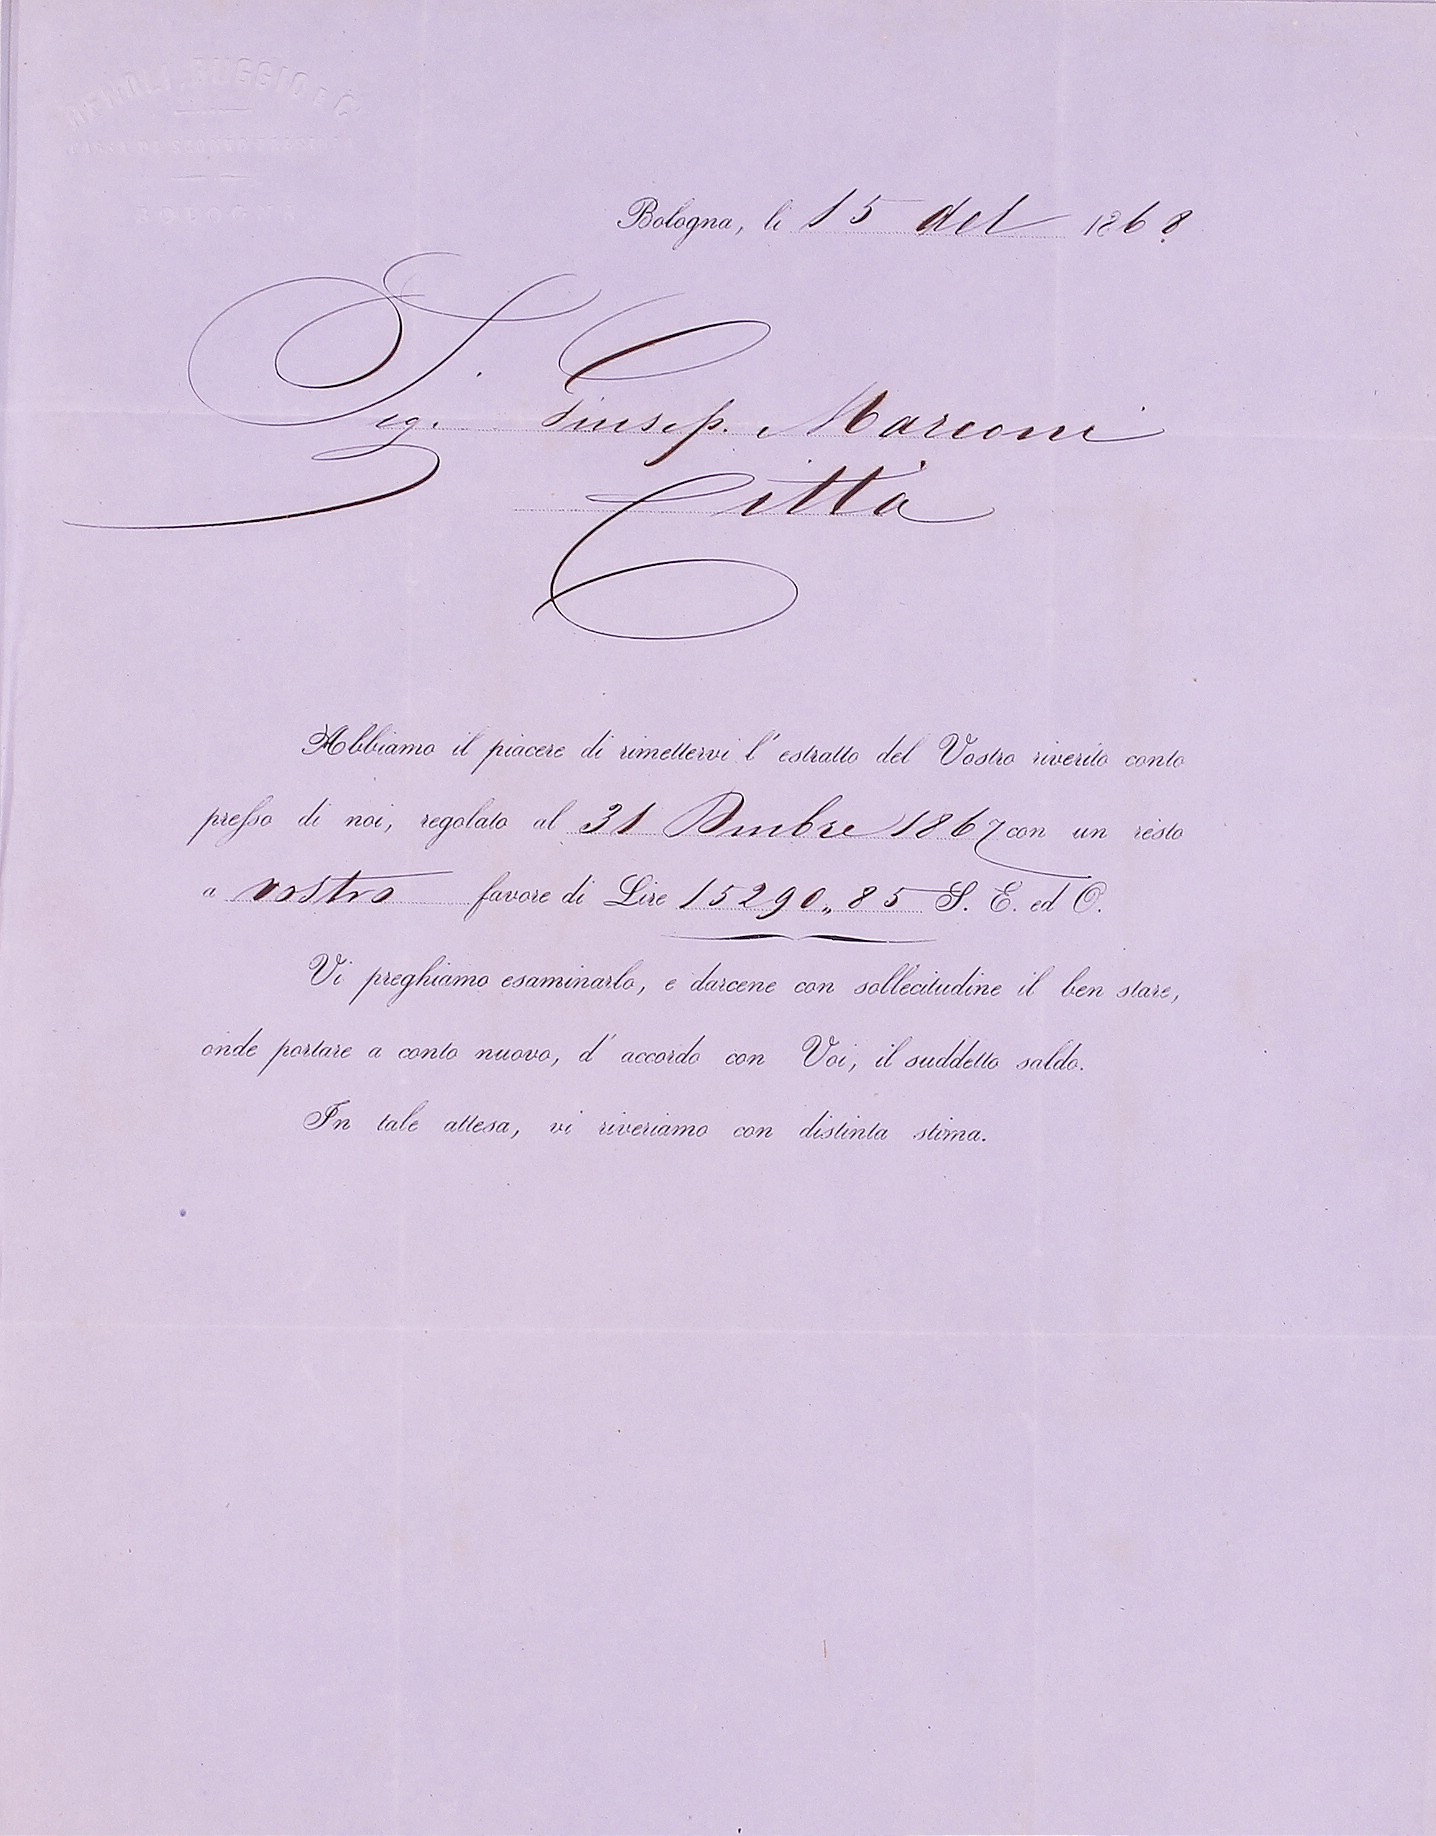 BOLOGNA
Bologna, li 15 del 1868
Sig. Giusep. Marconi
Città
Abbiamo il piacere di rimettervi l'estratto del Vostro riverito conto
presso di noi, regolato al 31 Dmbre 1867 con un resto
a vostro favore di Lire 15290,, 85 S. E. ed O.
Vi preghiamo esaminarlo, e darcene con sollecitudine il ben stare,
onde portare a conto nuovo, d'accordo con Voi, il suddetto saldo.
In tale attesa, vi riveriamo con distinta stima.